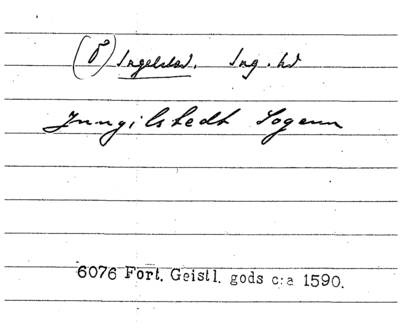 (Ö) Ingelstad. Ing. hd
Jnngilstedt Sogenn
6076 Fort. Geistl. gods c:a 1590.